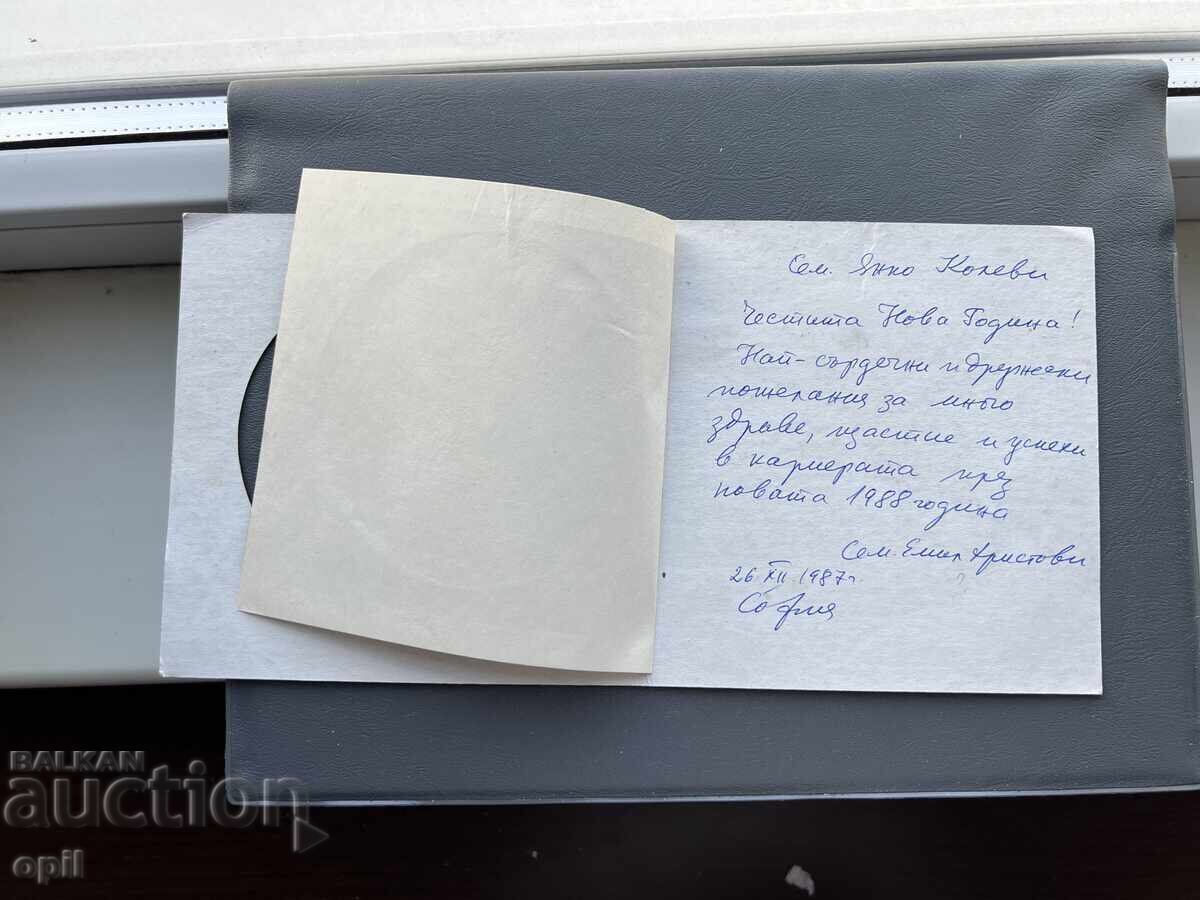 Сем. Янко Колеви
Честита Нова Година!
Най-сърдечни и дружески
пожелания за много
здраве, щастие и успехи
в кариерата през
новата 1988 година
Сем. Емил Христови
26 XII 1987г
София
BALKAN
auction
opil